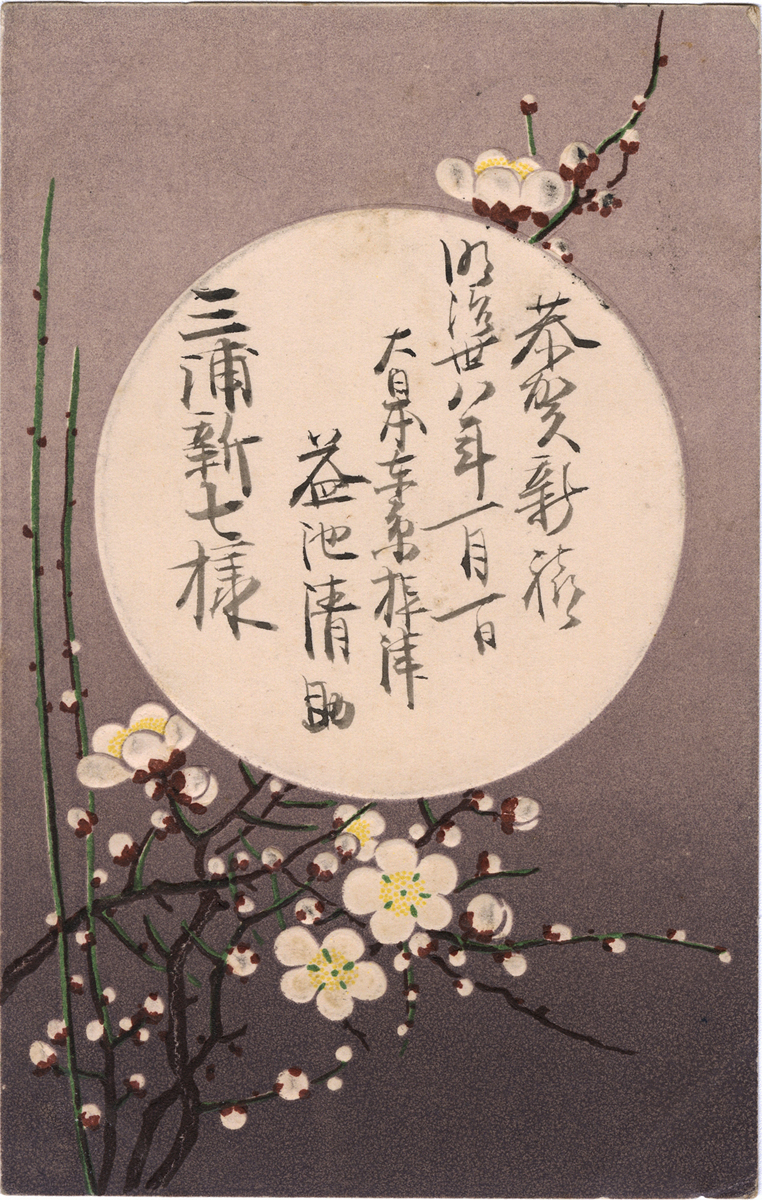 恭賀新禧
明治丗八年一月一日
大日本東京根津
益池清助
三浦新七様